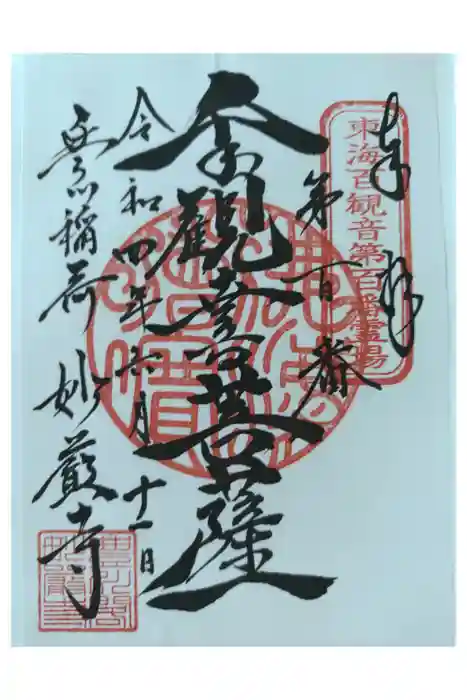 奉拝
東海百観音第百番霊場
第百番
觀音菩薩
令和四年六月十一日
豊川稲荷 妙嚴寺